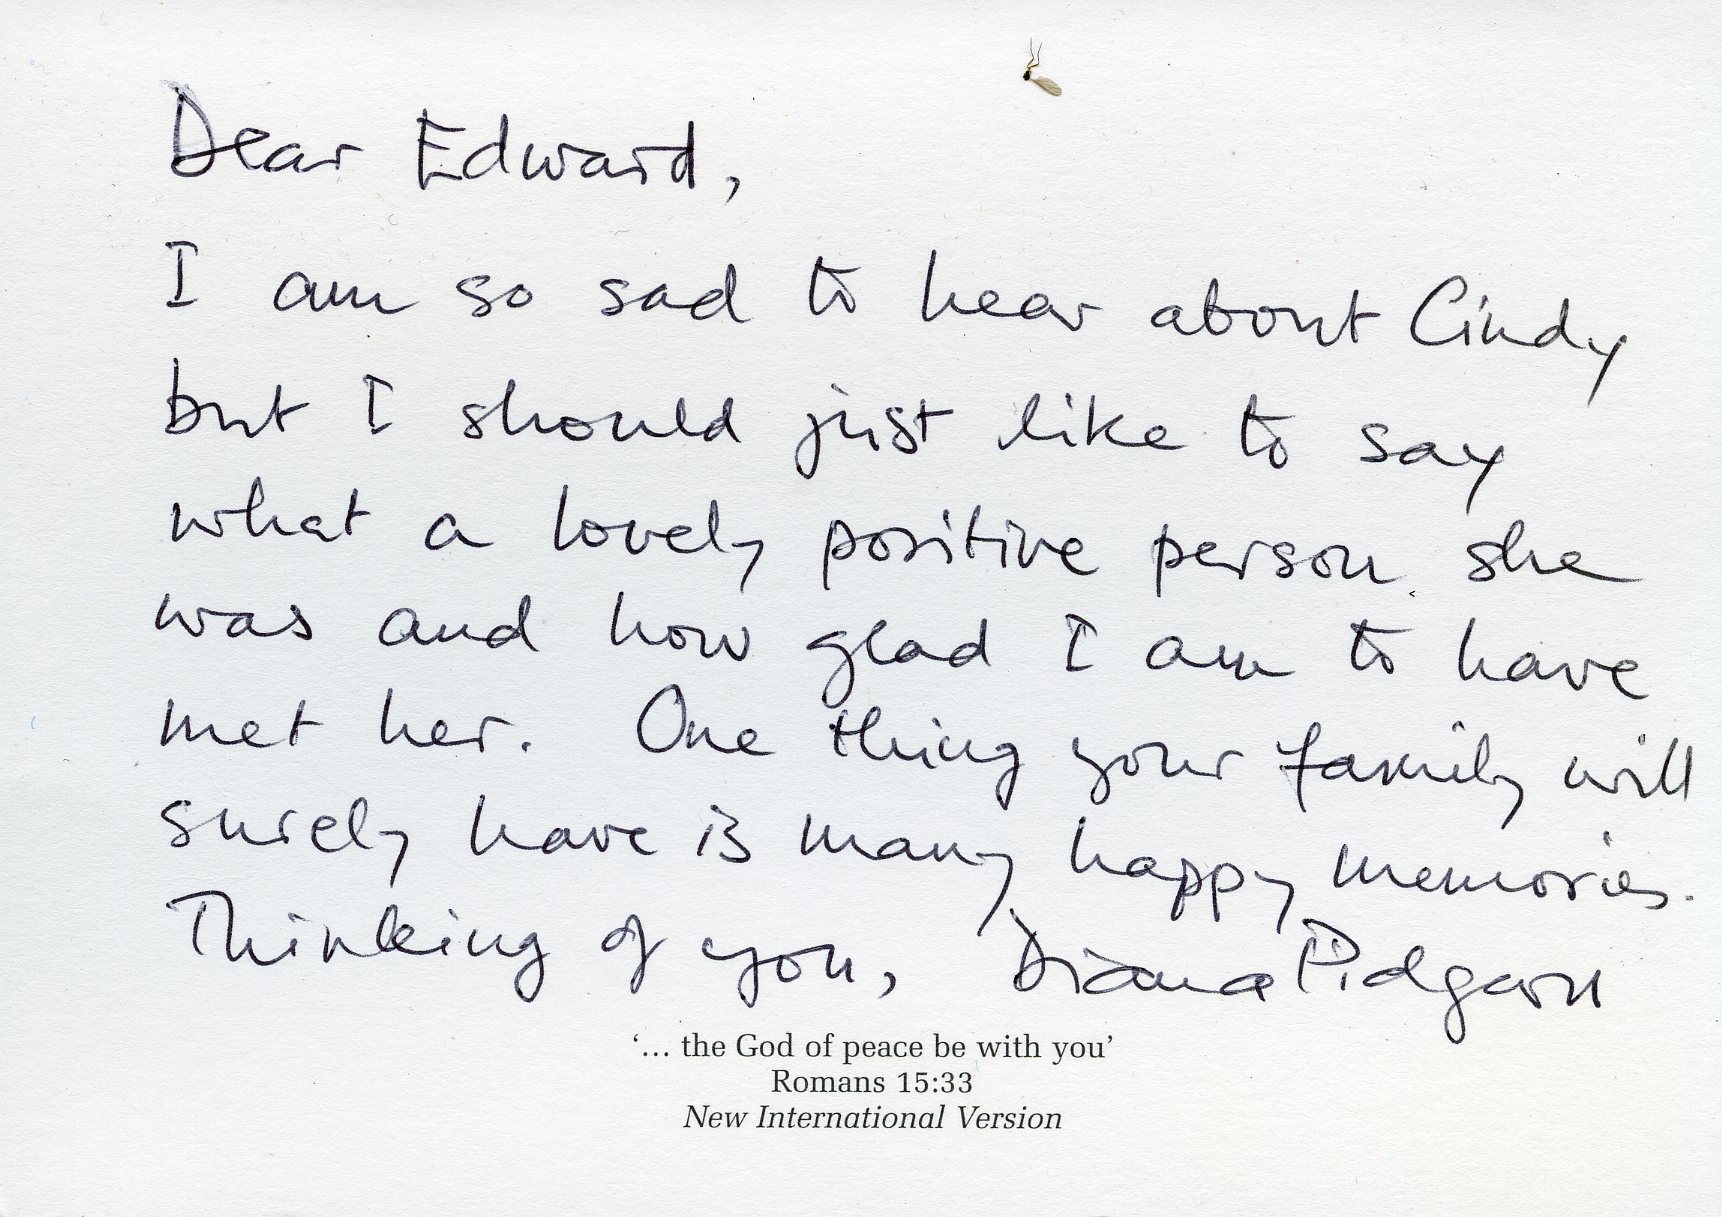 Dear Edward,
I am so sad to hear about Cindy
but I should just like to say
what a lovely positive person she
was and how glad I am to have
met her. One thing your family will
surely have is many happy memories.
Thinking of you, Diana
‘… the God of peace be with you’
Romans 15:33
New International Version